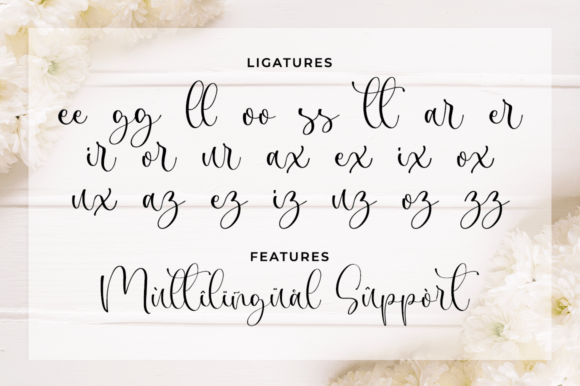 LIGATURES
ee gg ll oo ss tt ar er
ir or ur ax ex ix ox
ux az ez iz uz oz zz
FEATURES
Mùltîlïñgüàl Sûppòrt